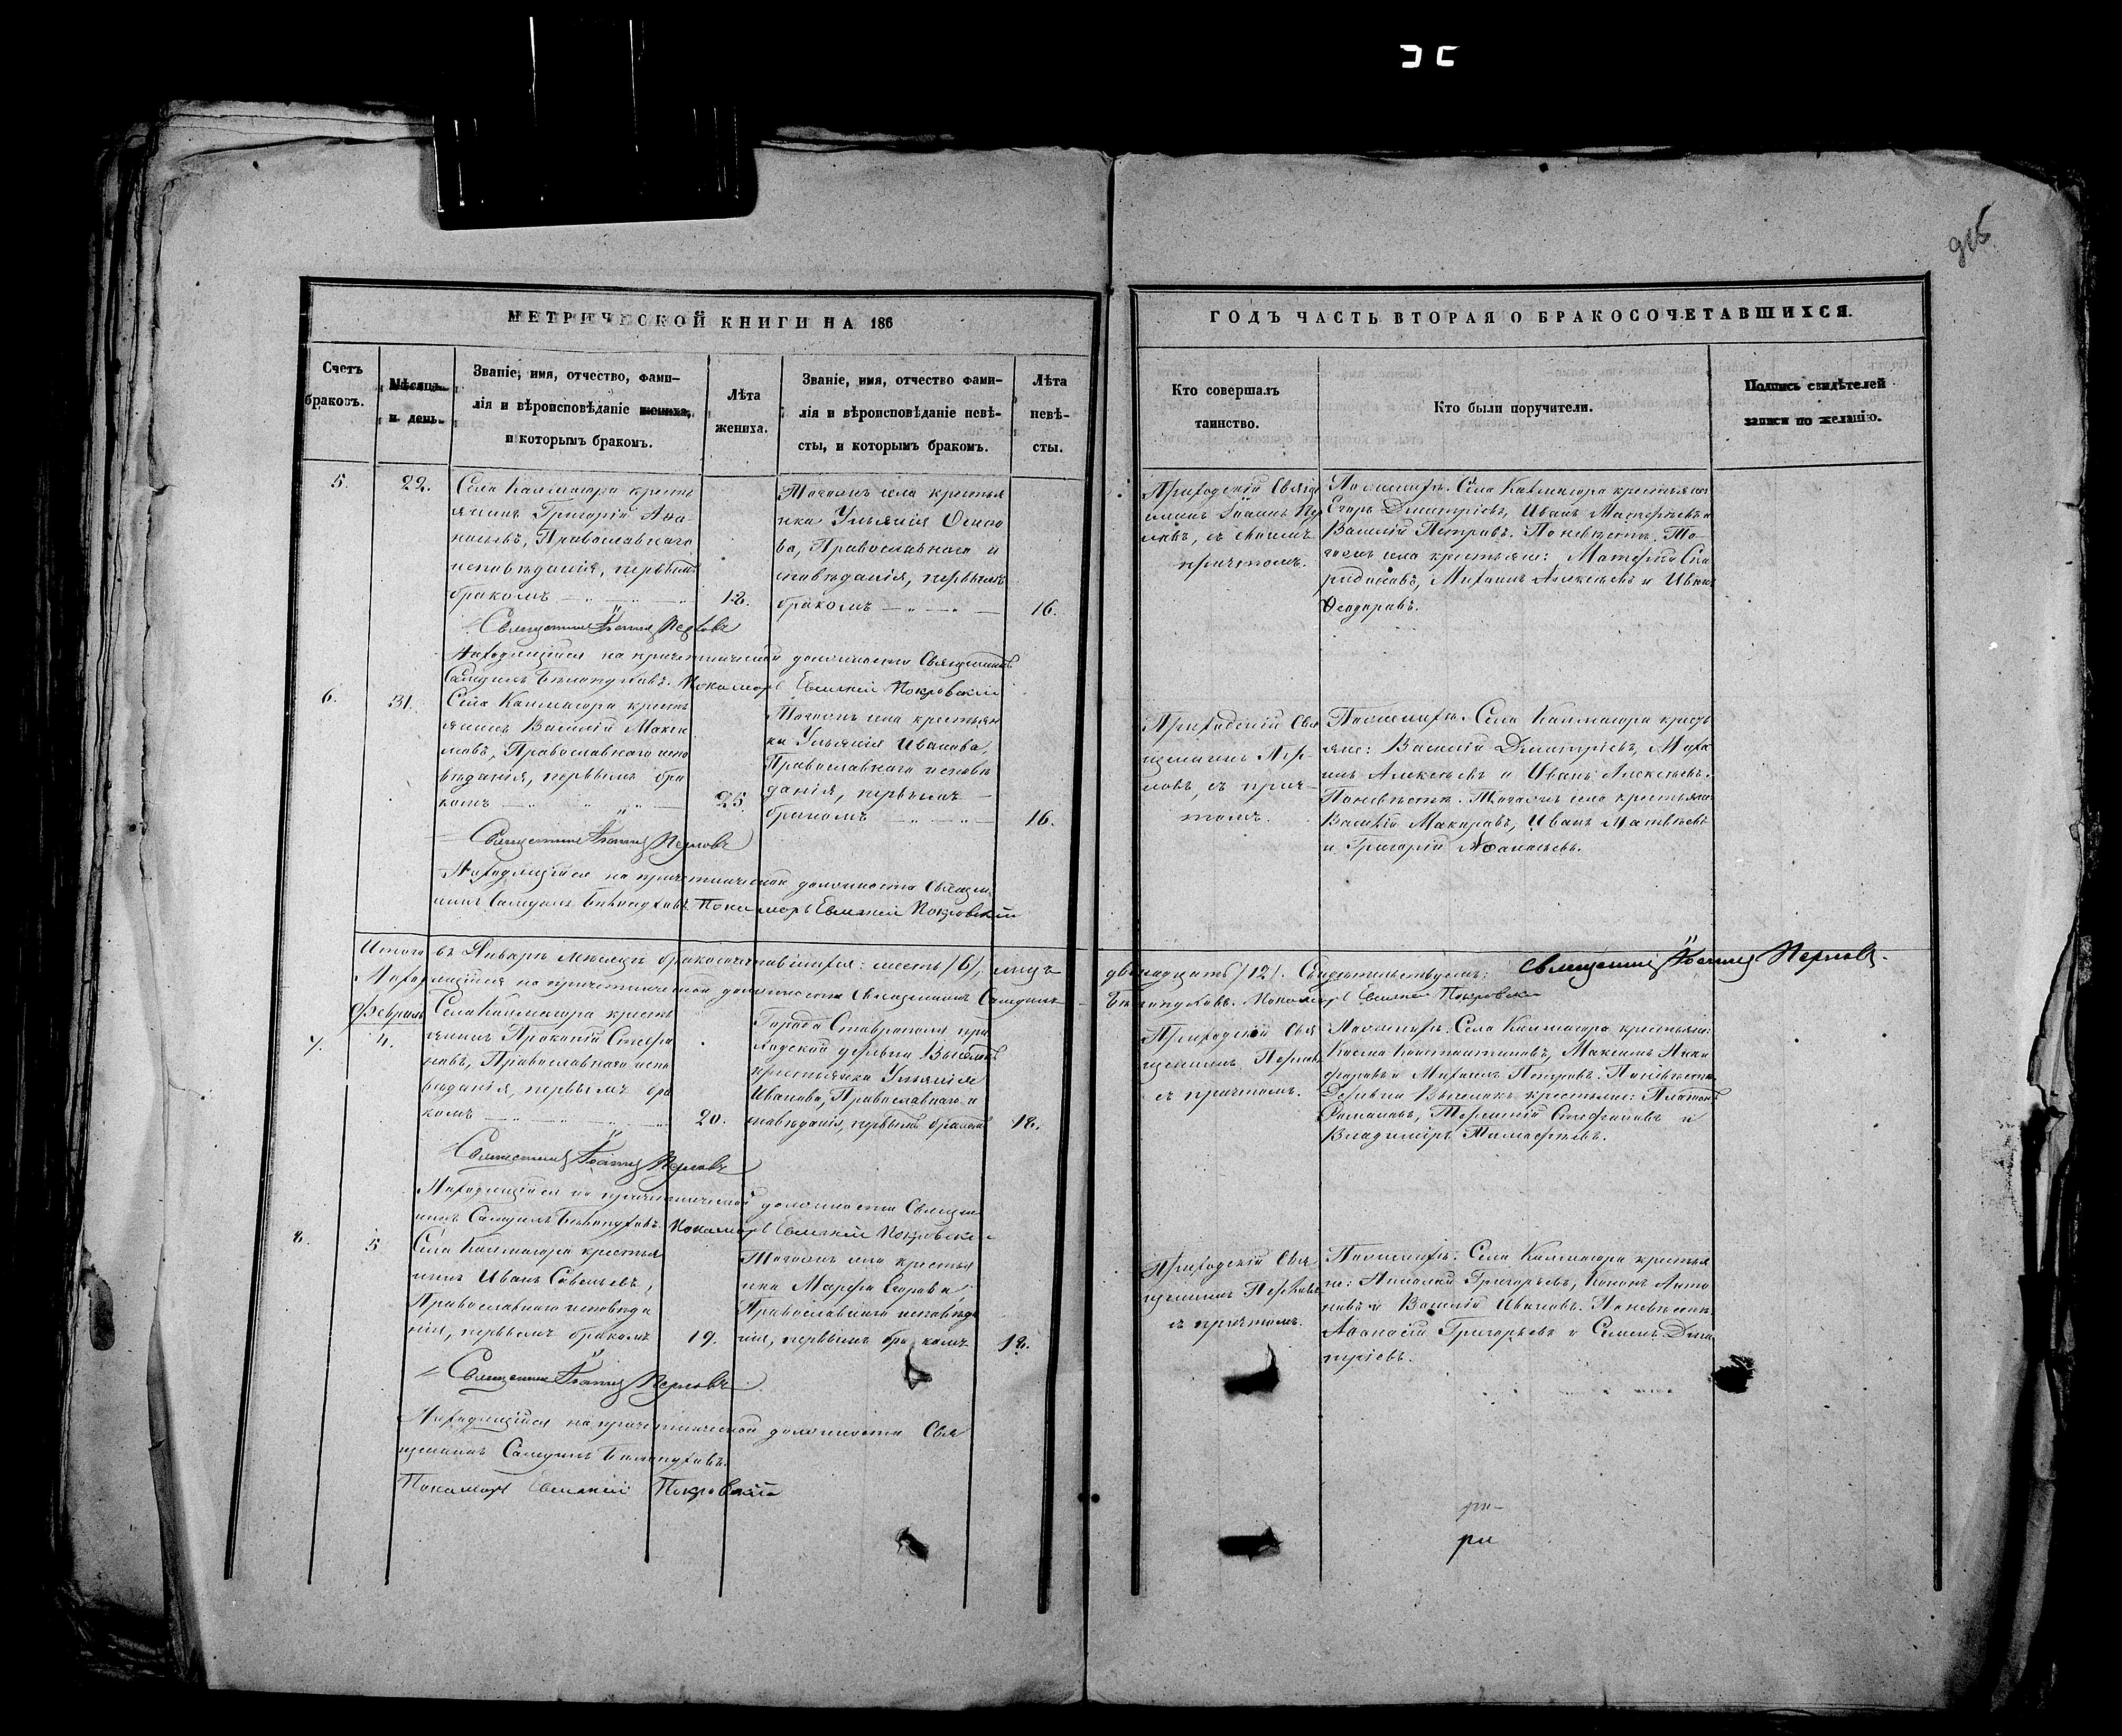 МЕТРИЧЕСКОЙ КНИГИ НА 186
Счетъ
браковъ.
Мѣсяцъ
и день.
Званіе, имя, отчество, фами-
лія и вѣроисповѣданіе жениха,
и которымъ бракомъ.
Лѣта
жениха.
Званіе, имя, отчество фами-
лія и вѣроисповѣданіе невѣ-
сты, и которымъ бракомъ.
Лѣта
невѣ-
сты.
ГОДЪ ЧАСТЬ ВТОРАЯ О БРАКОСОЧЕТАВШИХСЯ.
Кто совершалъ
таинство.
Кто были поручители.
Подпись свидѣтелей
записи по желанію.
5.
22.
Села Калмаюра кресть
янинъ Григорій Аѳа-
насьевъ, Православнаго
исповѣданія, первымъ
бракомъ
18.
Тогожъ села крестья
нка Ульянія Осипо
ва, Православнаго и
сповѣданія, первымъ
бракомъ
16.
Приходскій Свяще
нникъ Іоаннъ Пер
ловъ, съ своимъ
причтомъ.
Села Калмаюра крестьяне
Егоръ Димитріевъ, Иванъ и
Василій Петровъ. То-
гожъ села крестьяне: Спи
ридоновъ, Михаилъ Алексѣевъ и Иванъ
Ѳеодоровъ.
Священникъ Іоаннъ Перловъ
Находящійся на причетнической должности Священникъ
Самуилъ Бѣлопуховъ. Пономарь Евгеній Покровскій
6.
31.
Села Калмаюра кресть
янинъ Василій Макси
мовъ, Православнаго испо
вѣданія, первымъ бра
комъ
25.
Тогожъ села крестьян
ка Ульянія Иванова,
Православнаго исповѣ
данія, первымъ
бракомъ
16.
Приходскій Свя
щенникъ Пер-
ловъ, съ прич-
томъ.
Села Калмаюра кресть
яне: Василій Димитріевъ, Миха
илъ Алексѣевъ и Иванъ Алексѣевъ.
Тогожъ села крестьяне
Василій Макаровъ, Иванъ Матвѣевъ
и Григорій Аѳанасьевъ.
Священникъ Іоаннъ Перловъ
Находящійся на причетнической должности Священ
никъ Самуилъ Бѣлопуховъ. Пономарь Евгеній Покровскій
Итого въ Январѣ мѣсяцѣ бракосочетавшихся: шесть /6/, лицъ двѣнадцать /12/. Свидѣтельствуемъ: Священникъ Іоаннъ Перловъ.
Находящійся на причетнической должности Священникъ Самуилъ Бѣлопуховъ. Пономарь Евгеній Покровскій
Февраль
7.
4.
Села Калмаюра кресть
янинъ Прокопій Стефа
новъ, Православнаго испо
вѣданія, первымъ бра
комъ
20.
Города Ставрополя при
ходской деревни
крестьянка Ульянія
Иванова, Православнаго и
сповѣданія, первымъ бракомъ
18.
Приходскій Свя
щенникъ Перловъ
съ причтомъ.
Села Калмаюра крестьяне:
Косма Константиновъ, Максимъ
и Михаилъ Петровъ.
Деревни крестьяне: Платонъ
Стефановъ и
Владиміръ Тимоѳеевъ.
Священникъ Іоаннъ Перловъ
Находящійся на причетнической должности Священ
никъ Самуилъ Бѣлопуховъ. Пономарь Евгеній Покровскій
8.
5
Села Калмаюра крестья
нинъ Иванъ Савельевъ,
Православнаго исповѣда
нія, первымъ бракомъ
19.
Тогожъ села крестья
нка Марѳа Егорова,
Православнаго исповѣда
нія, первымъ бракомъ
18.
Приходскій Свя
щенникъ Перловъ
съ причтомъ.
Села Калмаюра крестья
не: Николай Григорьевъ, Анто
новъ и Василій Ивановъ.
Аѳанасій Григорьевъ и Семенъ Дими
тріевъ.
Священникъ Іоаннъ Перловъ
Находящійся на причетнической должности Свя
щенникъ Самуилъ Бѣлопуховъ.
Пономарь Евгеній Покровскій